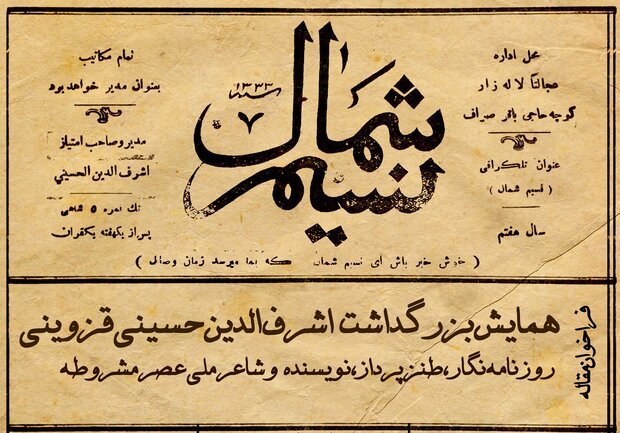 محل اداره
عجالتاً لاله زار
کوچه حاجی باقر صراف
عنوان تلگرافی
( نسیم شمال )
سال هفتم
نسیم شمال
سنه ۱۳۳۳
۷
تمام مکاتیب
بعنوان مدیر خواهد بود
مدیر و صاحب امتیاز
اشرف الدین الحسینی
تك نمره ۵ شاهی
پس از یکهفته یکقران
( خوش خبر باش ای نسیم شمال که بما میرسد زمان وصال )
فراخوان مقاله
همایش بزرگداشت اشرف‌الدین حسینی قزوینی
روزنامه‌نگار، طنزپرداز، نویسنده و شاعر ملی عصر مشروطه